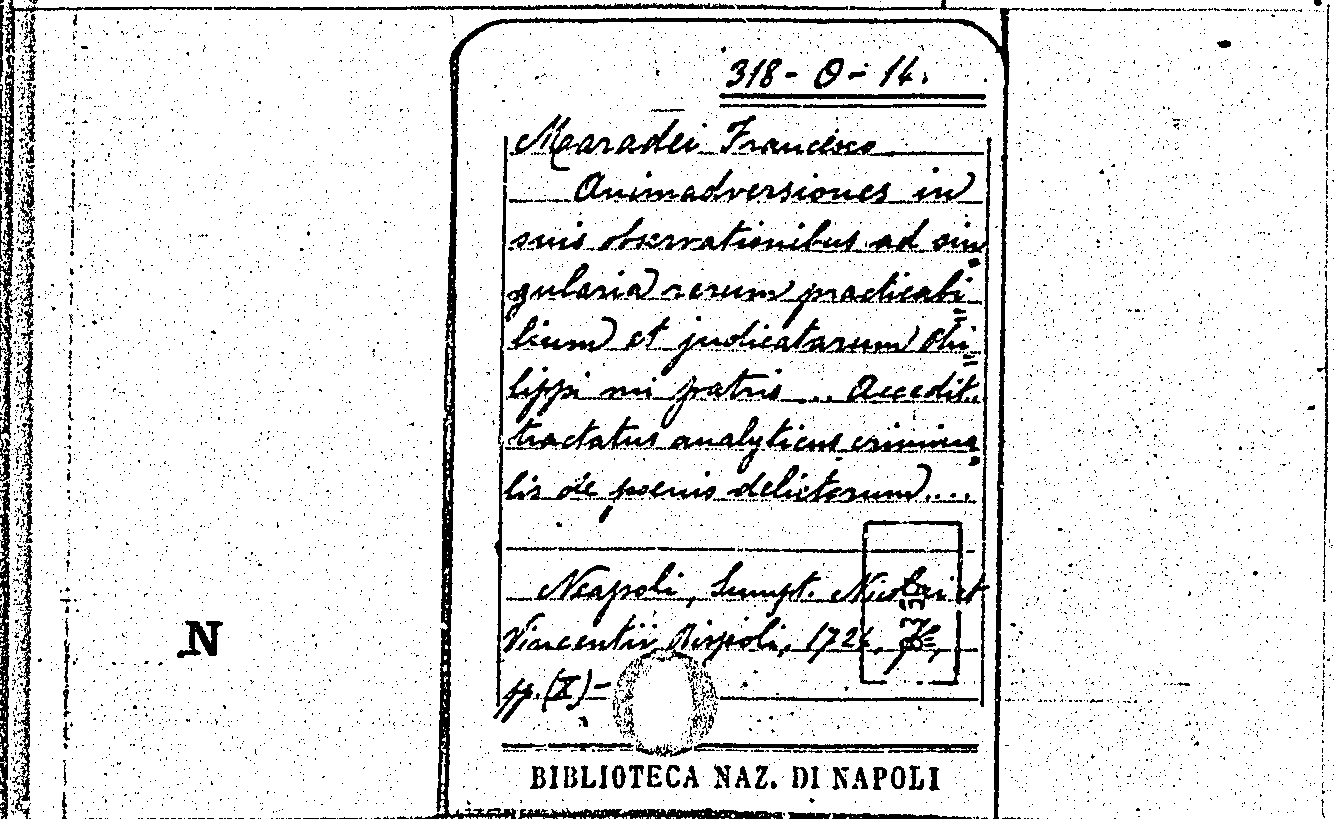 318-O-14.
Maradei Francesco
Animadversiones in
suis observationibus ad sin=
gularia rerum practicabi=
lium et judicatarum Phi=
lippi mi patris ... Accedit
tractatus analyticus crimina=
lis de poenis delictorum....
Neapoli, Sumpt. Nicolai et
Vincentii Rispoli, 1724,
pp. (X)-
N
BIBLIOTECA NAZ. DI NAPOLI